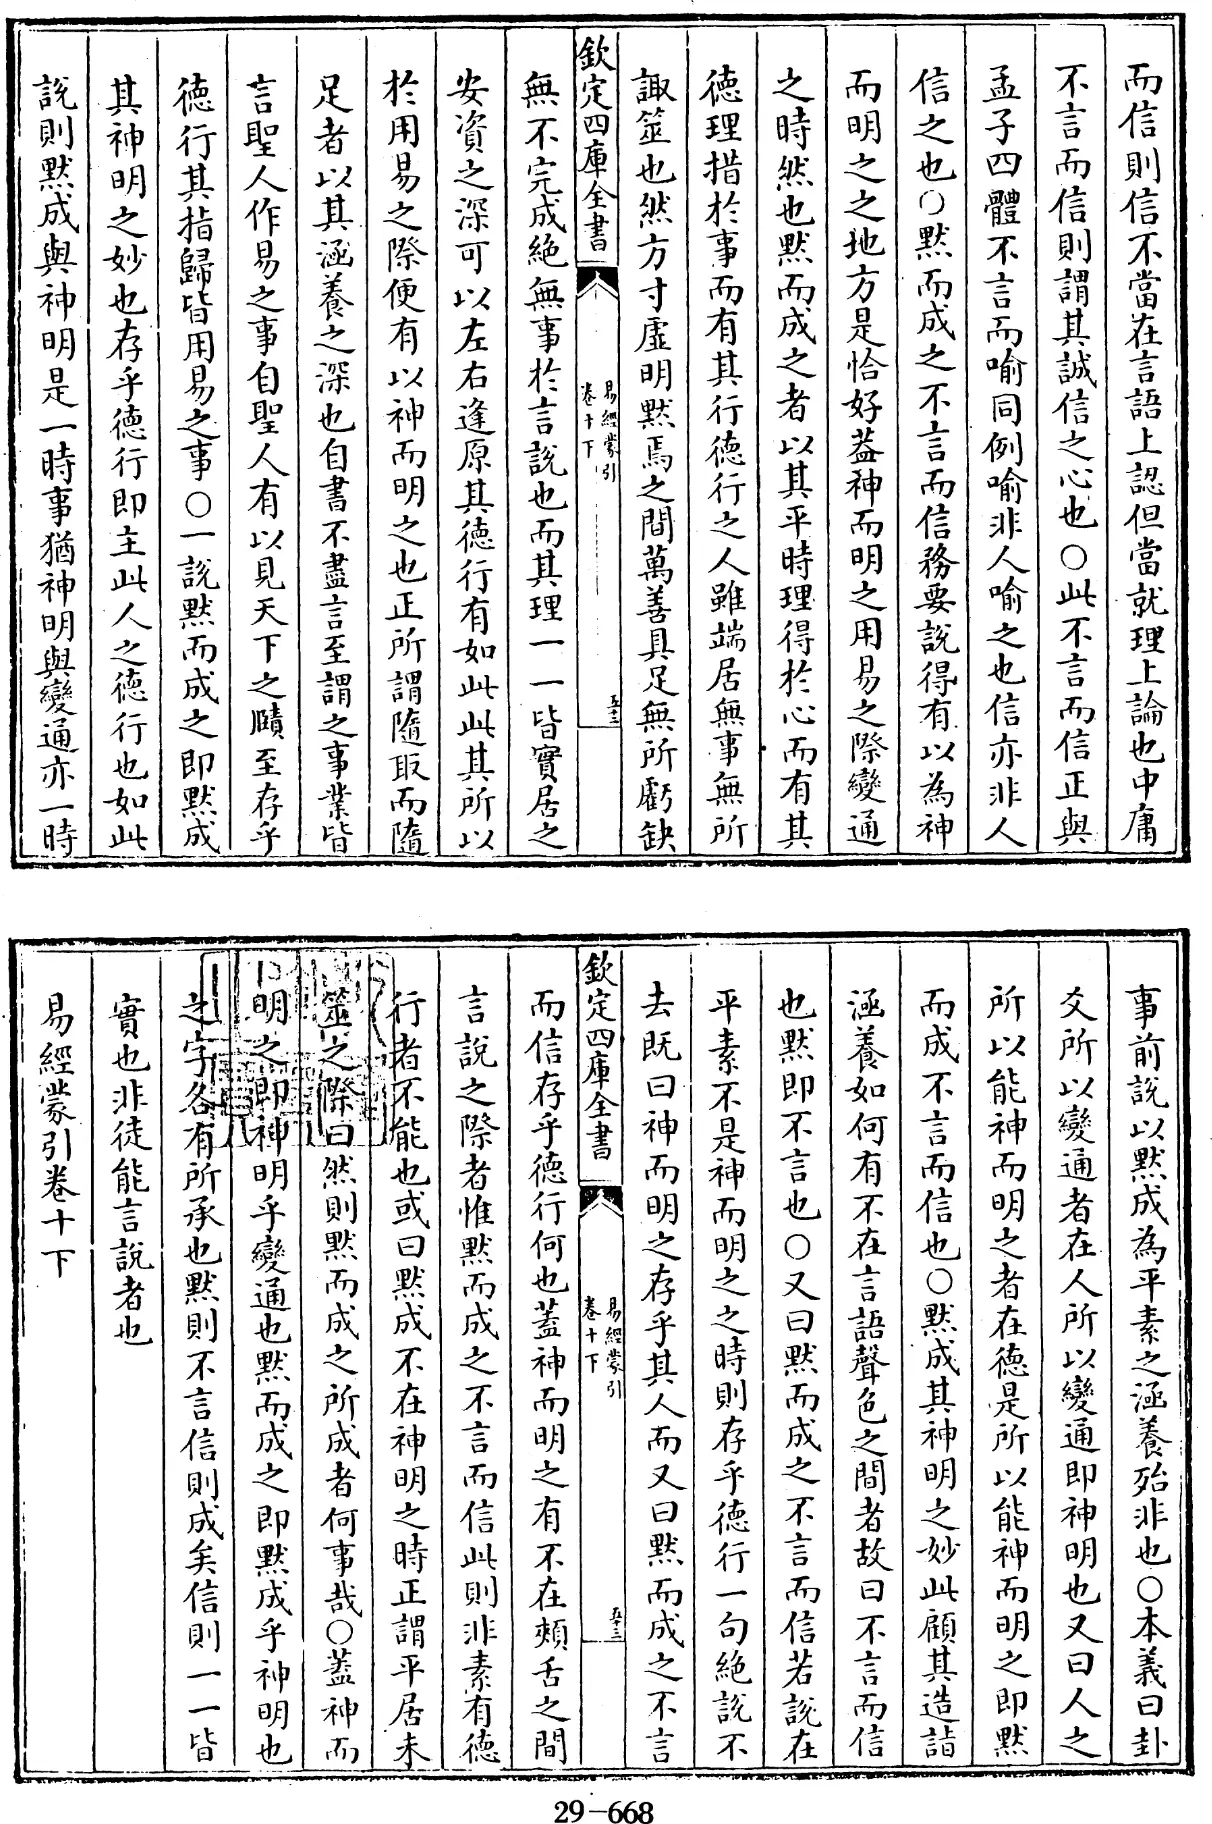 而信則信不當在言語上認但當就理上論也中庸
不言而信則謂其誠信之心也〇此不言而信正與
孟子四體不言而喻同例喻非人喻之也信亦非人
信之也〇默而成之不言而信務要說得有以為神
而明之之地方是恰好葢神而明之用易之際變通
之時然也默而成之者以其平時理得於心而有其
德理措於事而有其行德行之人雖端居無事無所
諏筮也然方寸虛明默焉之間萬善具足無所虧缺
欽定四庫全書
易經蒙引
卷十下
五十二
無不完成絶無事於言說也而其理一一皆實居之
安資之深可以左右逢原其德行有如此此其所以
於用易之際便有以神而明之也正所謂隨取而隨
足者以其涵養之深也自書不盡言至謂之事業皆
言聖人作易之事自聖人有以見天下之賾至存乎
德行其指歸皆用易之事〇一說默而成之即默成
其神明之妙也存乎德行即主此人之德行也如此
說則默成與神明是一時事猶神明與變通亦一時
事前說以默成為平素之涵養殆非也〇本義曰卦
爻所以變通者在人所以變通即神明也又曰人之
所以能神而明之者在德是所以能神而明之即默
而成不言而信也〇默成其神明之妙此顧其造詣
涵養如何有不在言語聲色之間者故曰不言而信
也默即不言也〇又曰默而成之不言而信若說在
平素不是神而明之之時則存乎德行一句絶說不
去既曰神而明之存乎其人而又曰默而成之不言
欽定四庫全書
易經蒙引
卷十下
五十三
而信存乎德行何也葢神而明之有不在頰舌之間
言說之際者惟默而成之不言而信此則非素有德
行者不能也或曰默成不在神明之時正謂平居未
筮之際曰然則默而成之所成者何事哉〇葢神而
明之即神明乎變通也默而成之即默成乎神明也
之字各有所承也默則不言信則成矣信則一一皆
實也非徒能言說者也
易經蒙引卷十下
29-668